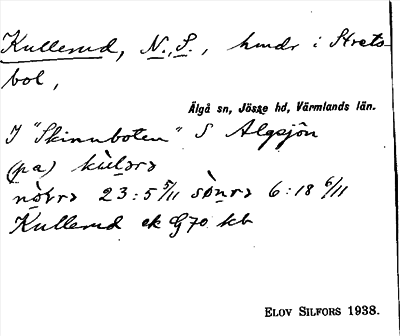 Kullerud, N., S., hmdr i Strets-
bol,
Älgå sn, Jösse hd, Värmlands län.
I "Skinnboten" S Algsjön
(pa) kùlərə
nò̱rrə 23:5 5/11 sønrə 6:18 6/11
Kullerud ek G70 kb
ELOV SILFORS 1938.